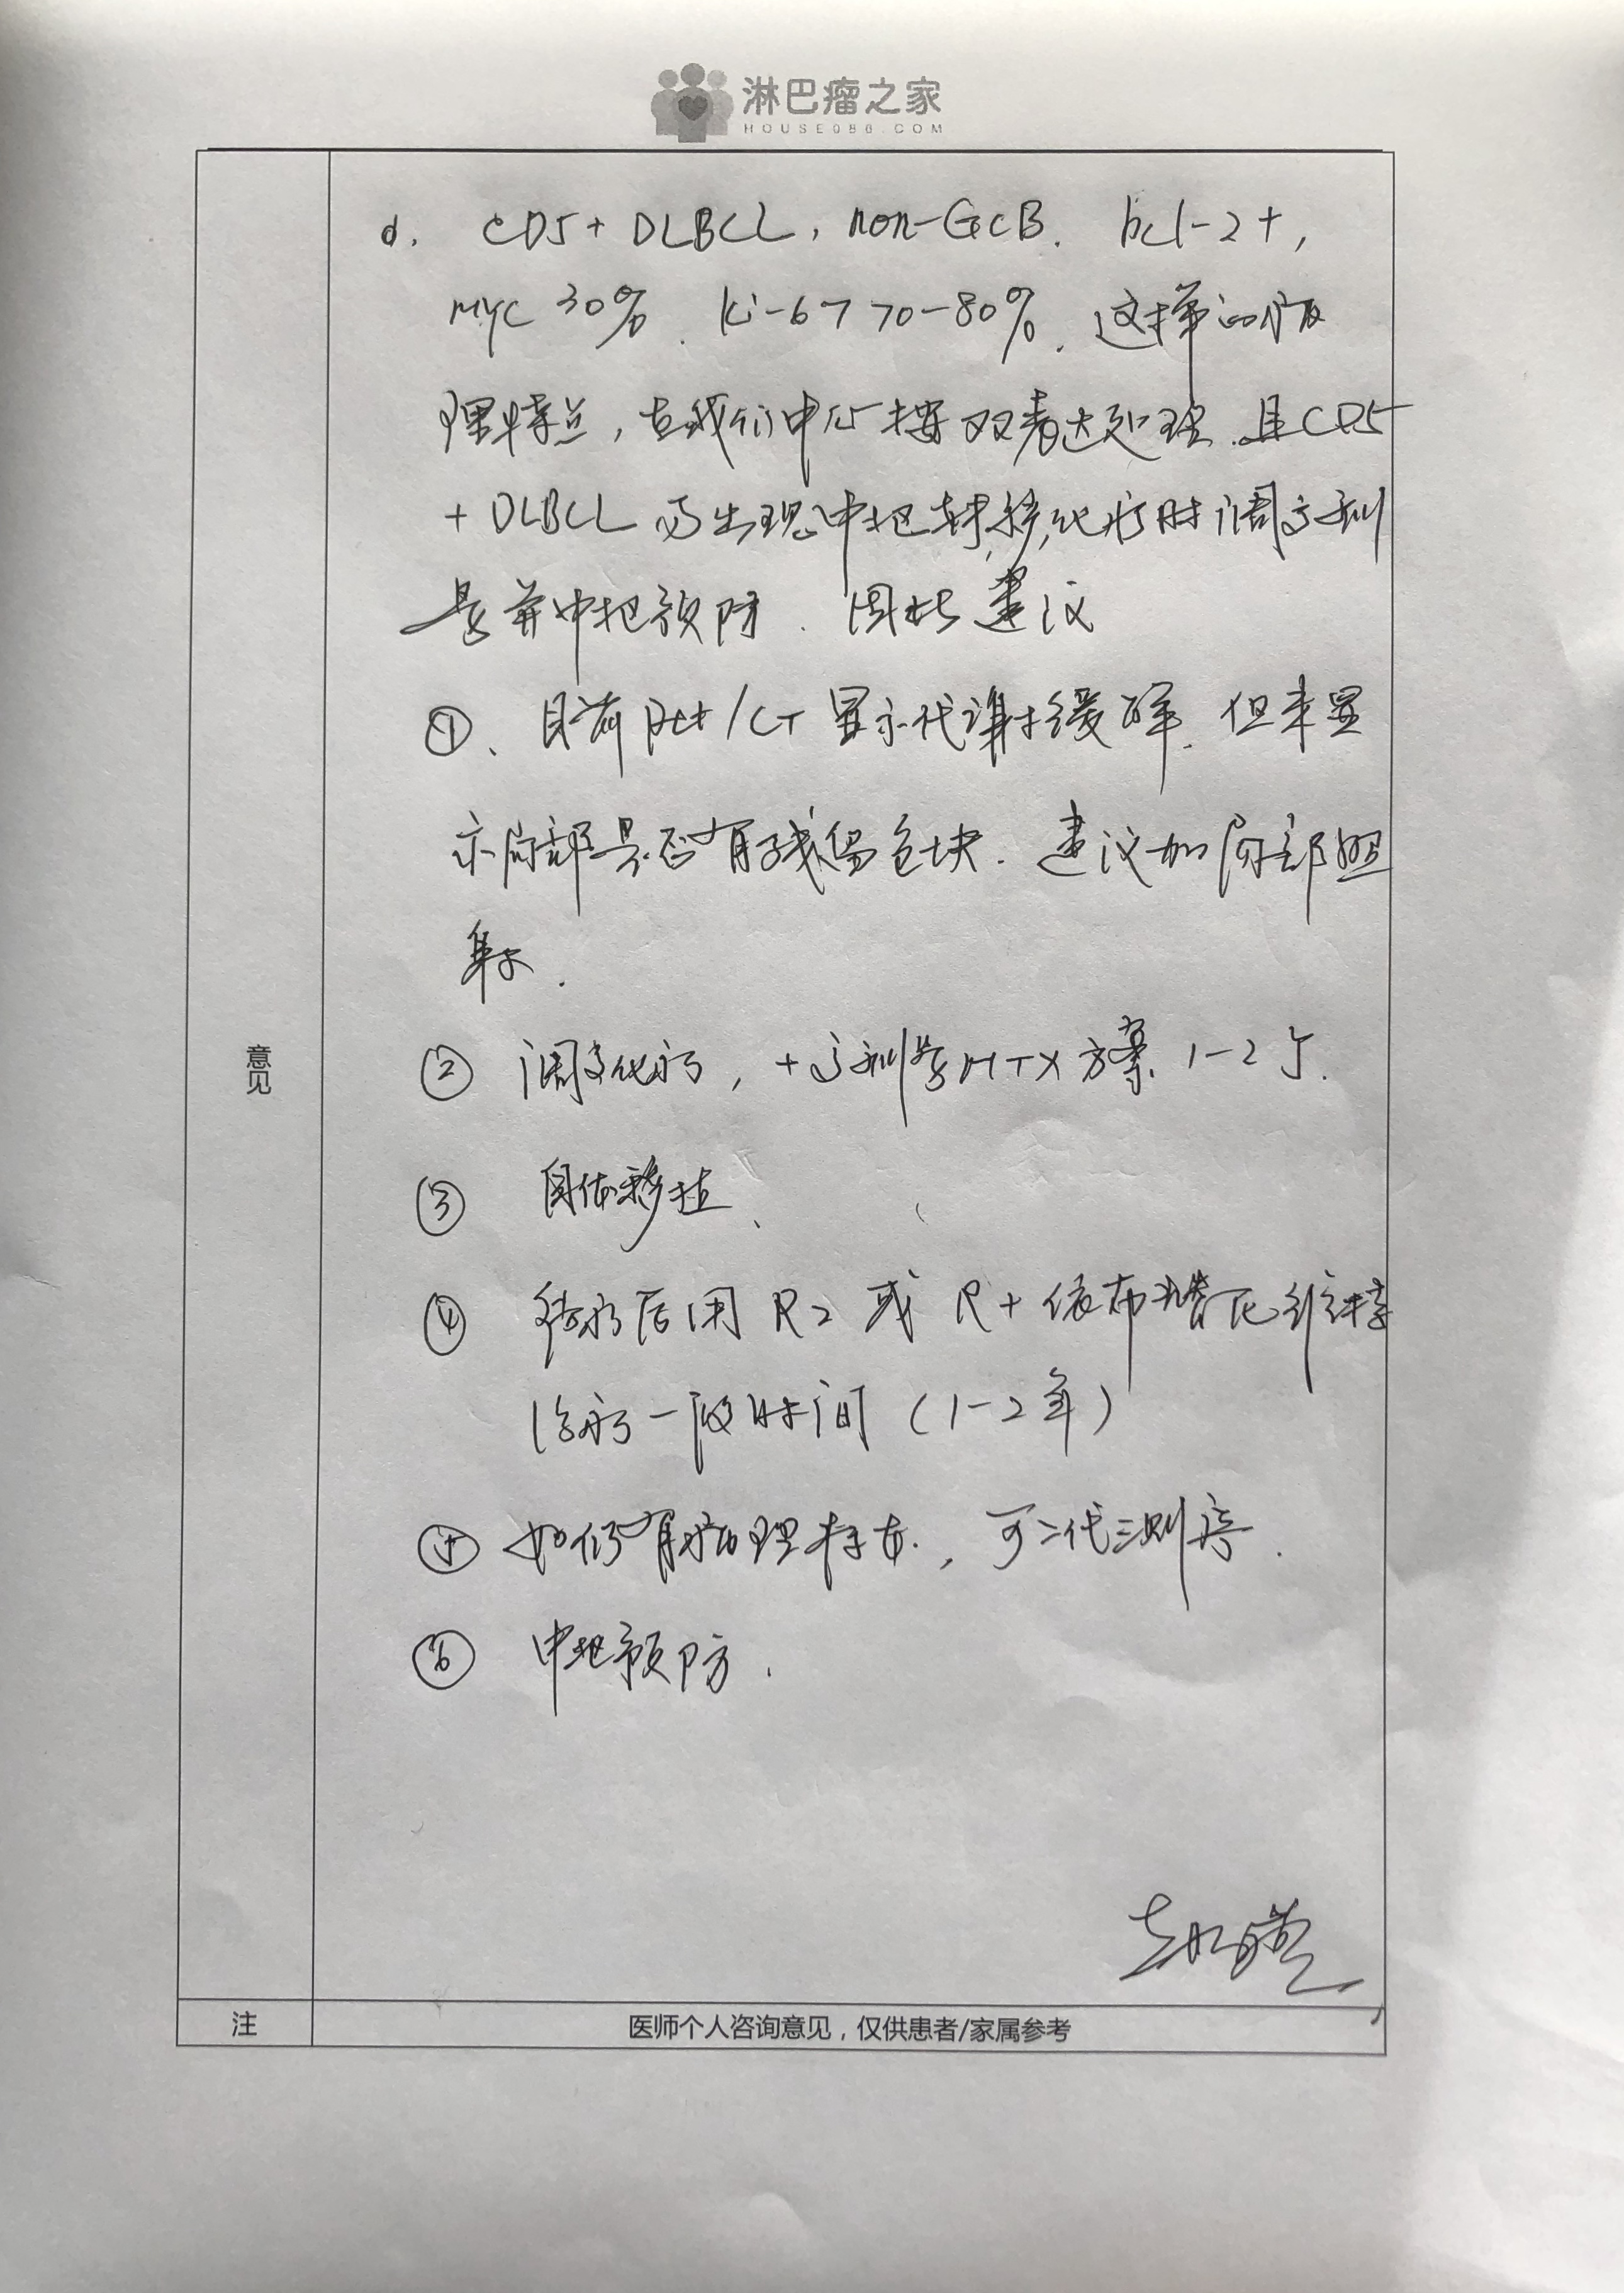 淋巴瘤之家
HOUSE086.COM
d. CD5+ DLBCL, non-GCB. bcl-2+,
MYC 30%. Ki-67 70-80%. 这样的病
理特点，在我们中心按双表达处理.且CD5
+ DLBCL 易出现中枢转移,化疗时调方剂
中枢预防. 因此建议
①、目前Pet/CT 显示代谢缓解. 但未显
示局部是否有残留包块. 建议加局部照
射.
② 调方化疗, + MTX方案 1-2个.
③ 自体移植、
④ 移植后用 R2 或 R+依布替尼维持
治疗一段时间 (1-2年)
⑤ 如仍有病理标本, 可二代测序.
⑥ 中枢预防.
意见
注
医师个人咨询意见，仅供患者/家属参考